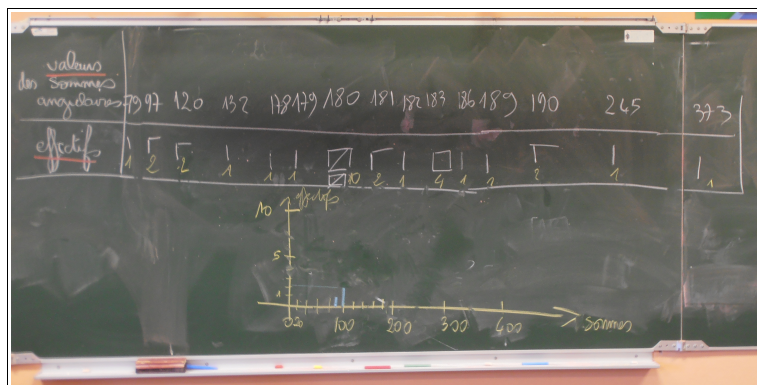 valeurs
des sommes
angulaires 79 97 120 132 178 179 180 181 182 183 186 189 190 245 373
effectifs 1 2 2 1 1 1 10 2 1 4 1 1 2 1 1
10 effectifs
5
1
0 20 100 200 300 400 sommes